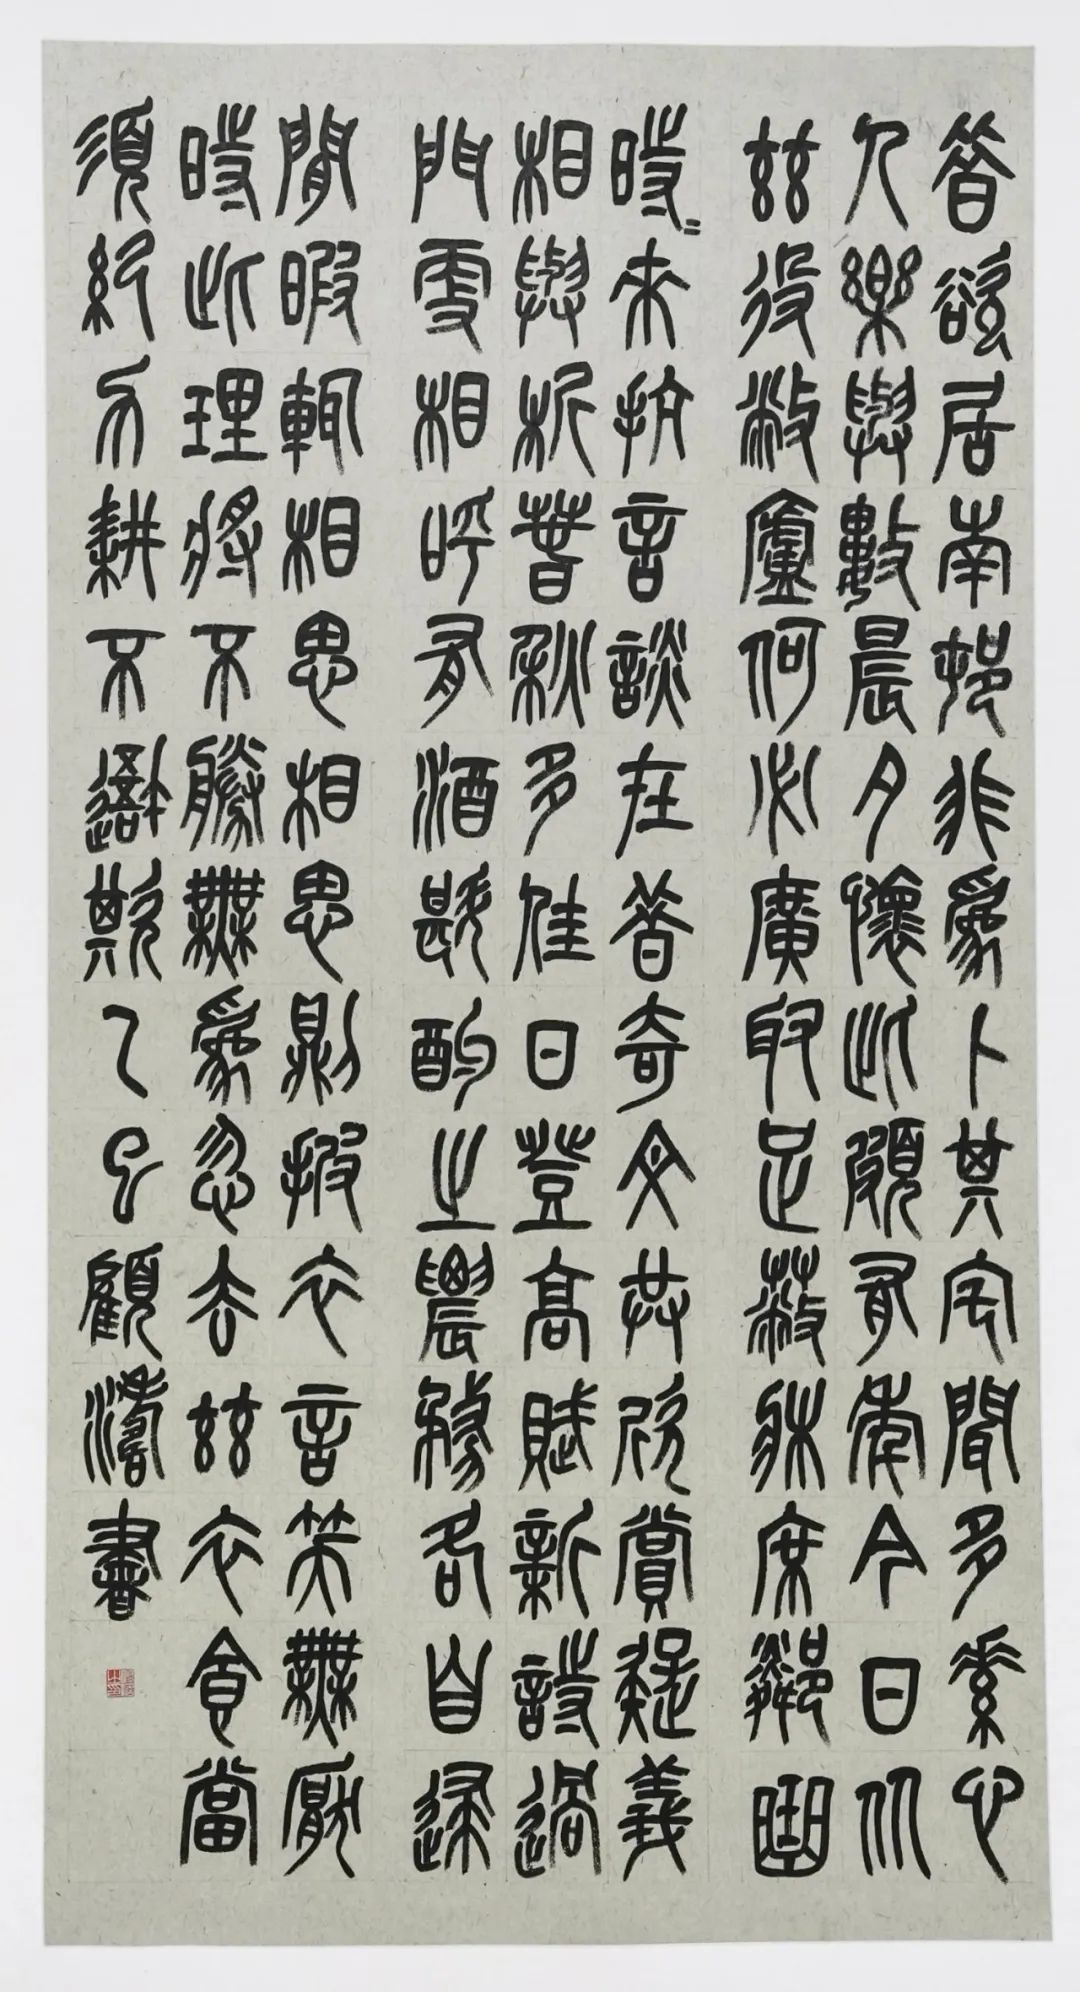 昔欲居南邨非為卜其宅聞多素心
人樂與數晨夕懷此頗有年今日從
茲役敝廬何必廣取足蔽牀席鄰曲
時〻來抗言談在昔奇文共欣賞疑義
相與析春秋多佳日登高賦新詩過
門更相呼有酒斟酌之農務各自歸
閒暇輒相思相思則披衣言笑無厭
時此理將不勝無為忽去茲衣食當
須紀力耕不吾欺乙巳顧濤書